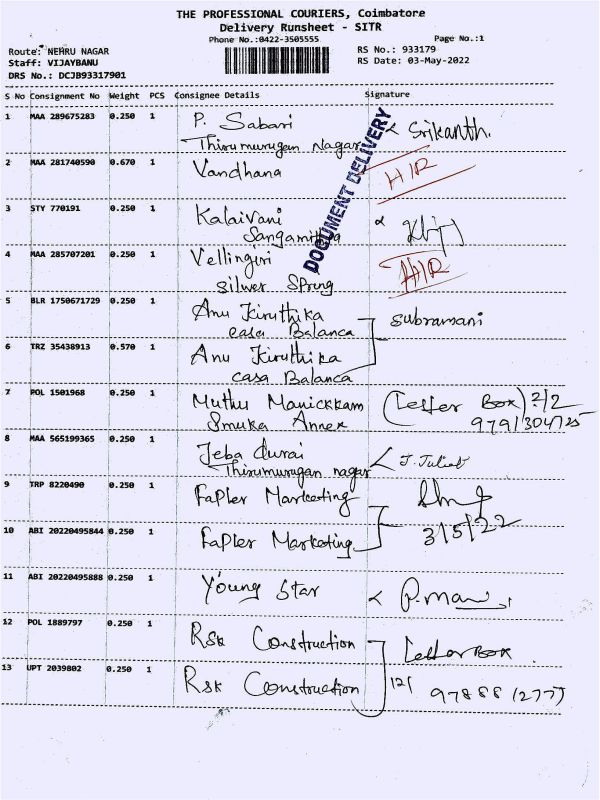 THE PROFESSIONAL COURIERS, Coimbatore
Delivery Runsheet - SITR
Phone No.:0422-3505555 Page No.:1
Route: NEHRU NAGAR RS No.: 933179
Staff: VIJAYBANU RS Date: 03-May-2022
DRS No.: DCJB93317901
S No Consignment No Weight PCS Consignee Details Signature
1 MAA 289675283 0.250 1 P. Sabari Srikanth.
Thirumurugan Nagar
DOCUMENT DELIVERY
2 MAA 281740590 0.670 1 Vandhana H/R
3 STY 770191 0.250 1 Kalaivani
Sangamithra
4 MAA 285707201 0.250 1 Vellingiri H/R
Silver Spring
5 BLR 1750671729 0.250 1 Anu Kiruthika Subramani
casa Balanca
6 TRZ 35438913 0.570 1 Anu Kiruthika
casa Balanca
7 POL 1501968 0.250 1 Muthu Manickkam (Letter Box) 2/2
Smuka Annex
8 MAA 565199365 0.250 1 Jeba durai
Thirumurugan nagar
9 TRP 8220490 0.250 1 Fapler Marketing
10 ABI 20220495844 0.250 1 Fapler Marketing 3/5/22
11 ABI 20220495888 0.250 1 Young Star
12 POL 1889797 0.250 1 Rsk Construction Letter Box
13 UPT 2039802 0.250 1 Rsk Construction